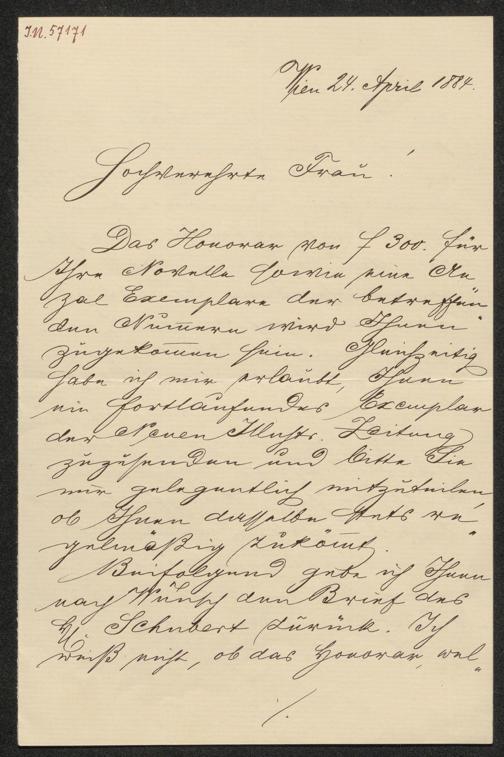 J.N. 57171
Wien 24. April 1884.
Hochverehrte Frau!
Das Honorar von f 300. für
Ihre Novelle sowie eine An
zal Exemplare der betreffen
den Nummern wird Ihnen
zugekommen sein. Gleichzeitig
habe ich mir erlaubt, Ihnen
ein fortlaufendes Exemplar
der Neuen Illustr. Zeitung
zuzusenden und bitte Sie
mir gelegentlich mitzuteilen,
ob Ihnen dasselbe stets re
gelmäßig zukommt.
Beifolgend gebe ich Ihnen
nach Wunsch den Brief des
H. Schubert zurück. Ich
weiß nicht, ob das Honorar, wel„
/.